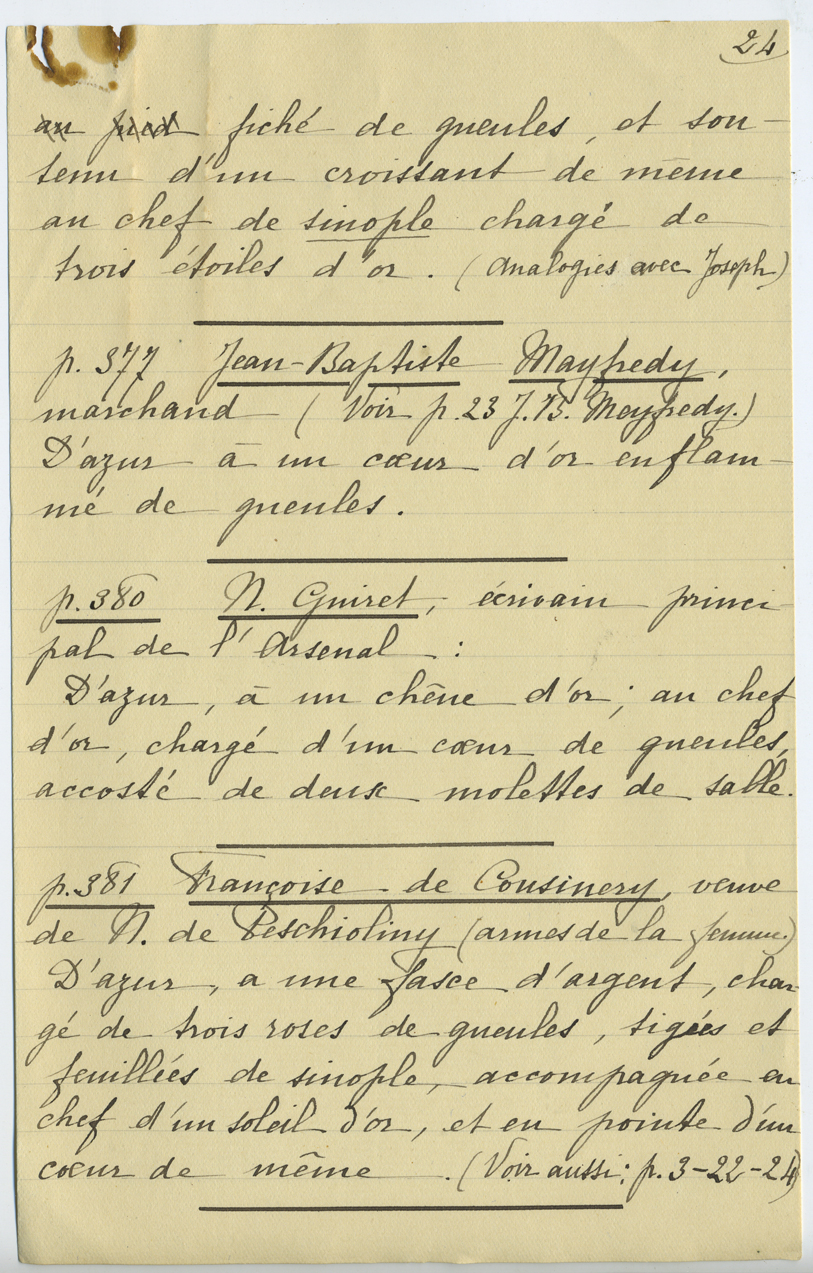 24
au pied fiché de gueules, et sou-
tenu d'un croissant de même
au chef de sinople chargé de
trois étoiles d'or. (Analogies avec Joseph)
p. 377 Jean-Baptiste Mayfredy,
marchand (Voir p. 23 J.B. Meyfredy.)
D'azur à un cœur d'or enflam-
mé de gueules.
p. 380 N. Guiret, écrivain princi-
pal de l'Arsenal :
D'azur, à un chêne d'or; au chef
d'or, chargé d'un cœur de gueules,
accosté de deux molettes de sable.
p. 381 Françoise de Cousinery, veuve
de N. de Peschioliny (armes de la femme)
D'azur, a une fasce d'argent, char-
gé de trois roses de gueules, tigées et
feuillées de sinople, accompagnée en
chef d'un soleil d'or, et en pointe d'un
cœur de même. (Voir aussi: p. 3-22-24)